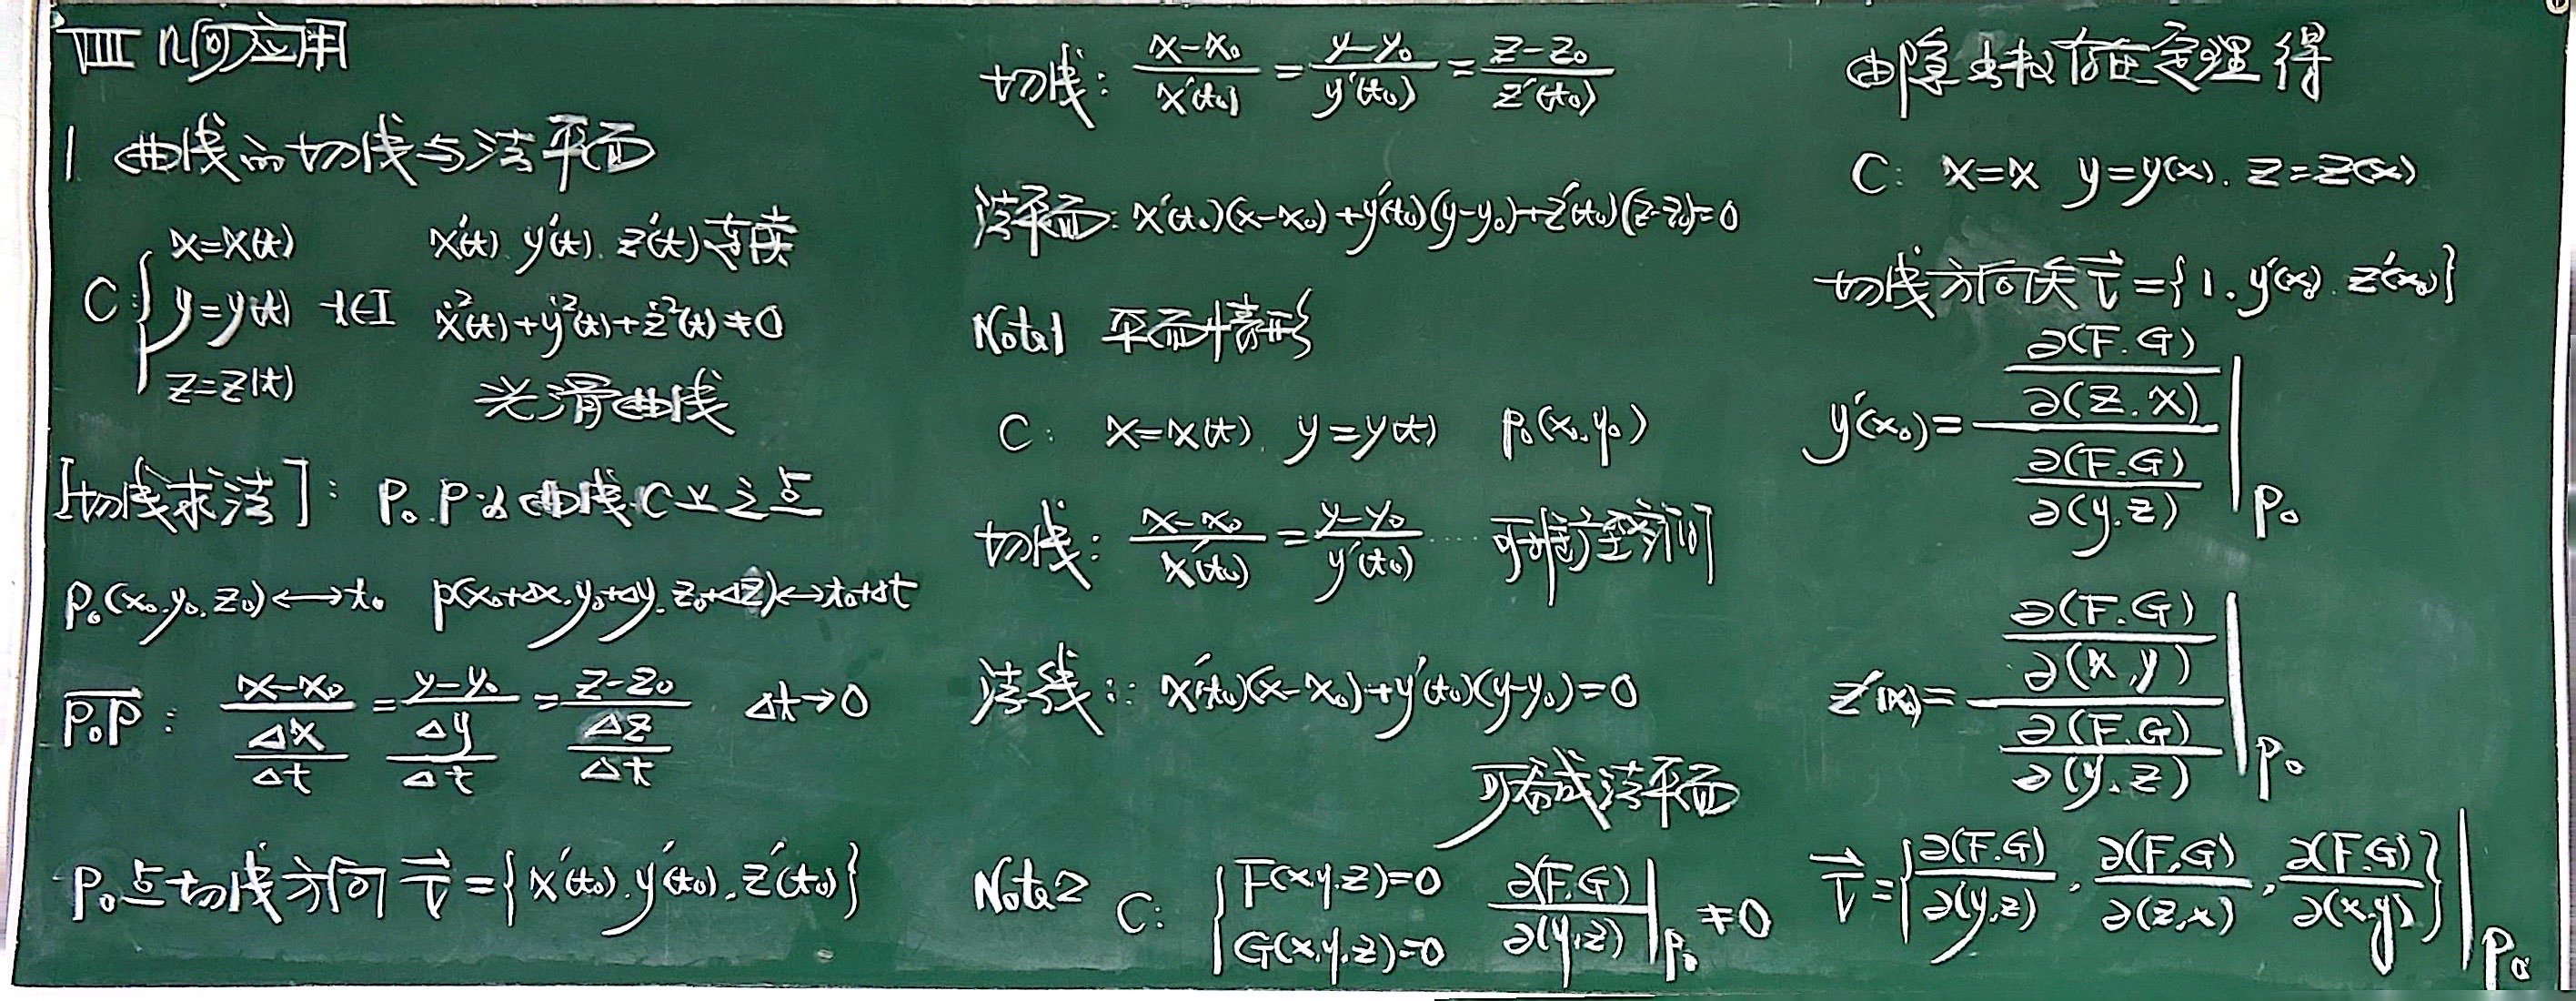 VIII 几何应用
1 曲线的切线与法平面
C { x=x(t)   x′(t). y′(t). z′(t) 连续
y=y(t) t∈I   ẋ²(t)+ẏ²(t)+ż²(t)≠0
z=z(t)   光滑曲线
[切线求法]: P₀.P为曲线C上之点
P₀(x₀.y₀.z₀)⟷t₀  P(x₀+Δx.y₀+Δy.z₀+Δz)⟷t₀+Δt
P₀P: (x-x₀)/(Δx/Δt)=(y-y₀)/(Δy/Δt)=(z-z₀)/(Δz/Δt)  Δt→0
P₀点切线方向 τ⃗={x′(t₀).y′(t₀).z′(t₀)}
切线: (x-x₀)/x′(t₀)=(y-y₀)/y′(t₀)=(z-z₀)/z′(t₀)
法平面: x′(t₀)(x-x₀)+y′(t₀)(y-y₀)+z′(t₀)(z-z₀)=0
Note1 平面情形
C: x=x(t) y=y(t)  P₀(x₀.y₀)
切线: (x-x₀)/x′(t₀)=(y-y₀)/y′(t₀) ···· 可推广至空间
法线: x′(t₀)(x-x₀)+y′(t₀)(y-y₀)=0
可看成法平面
Note2 C: { F(x.y.z)=0  ∂(F,G)/∂(y,z)|P₀ ≠0
G(x,y,z)=0
由隐函数存在定理得
C: x=x y=y(x). z=z(x)
切线方向矢 τ⃗={1.y′(x₀).z′(x₀)}
y′(x₀)=(∂(F.G)/∂(z.x))/(∂(F.G)/∂(y.z))|P₀
z′(x₀)=(∂(F.G)/∂(x,y))/(∂(F.G)/∂(y.z))|P₀
τ⃗={∂(F.G)/∂(y,z), ∂(F,G)/∂(z,x), ∂(F.G)/∂(x,y)}|P₀